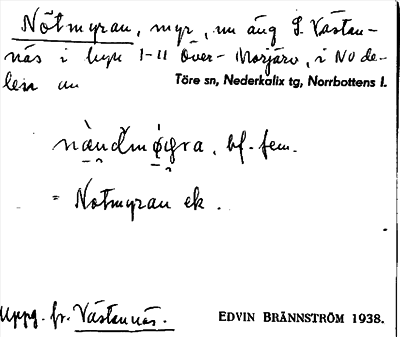 Nötmyran, myr, nu äng S. Västan-
näs i byn 1-11 Över-Morjärv, i NO de-
len av
Töre sn, Nederkalix tg, Norrbottens l.
bf. fem.
= Notmyran ek.
Uppg. fr. Västannäs.
EDVIN BRÄNNSTRÖM 1938.